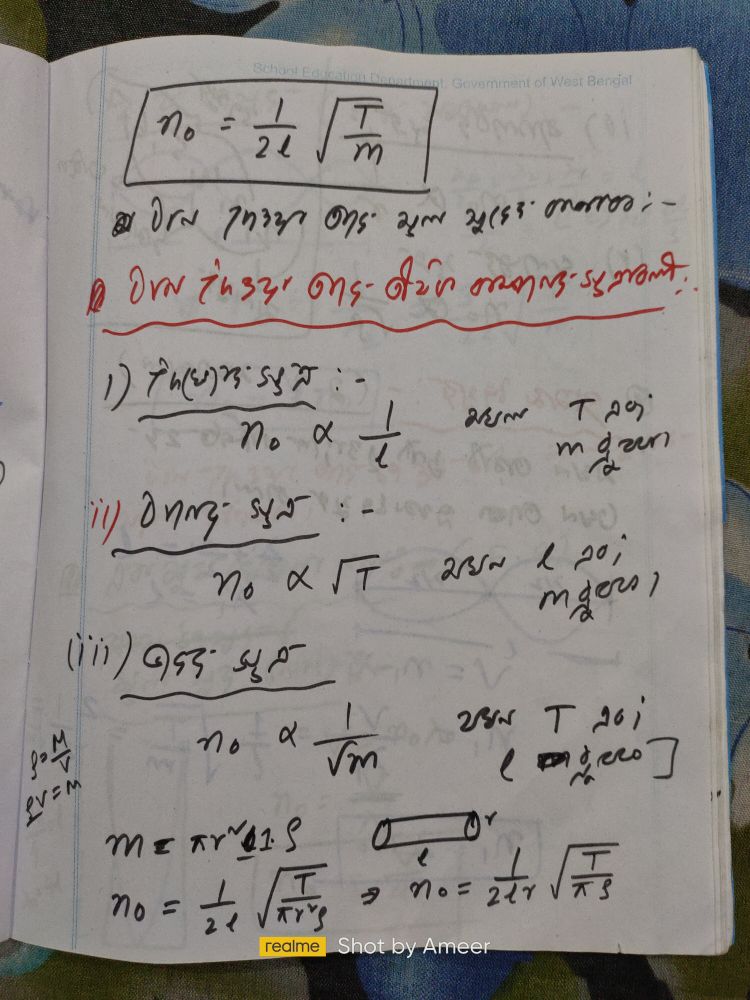 School Education Department, Government of West Bengal
n₀ = 1/2l √(T/m)
টানা তারের মূল সুরের কম্পাঙ্ক :-
টানা তারের আড় কম্পনের সূত্রাবলী :-
i) দৈর্ঘ্যের সূত্র :-
n₀ ∝ 1/l যখন T এবং
m ধ্রুবক।
ii) টানের সূত্র :-
n₀ ∝ √T যখন l এবং
m ধ্রুবক।
(iii) ভরের সূত্র
n₀ ∝ 1/√m যখন T এবং
l ধ্রুবক]
ρ = M/V
ρV = M
m = πr²·1·ρ
r
l
n₀ = 1/2l √(T/πr²ρ) ⇒ n₀ = 1/2lr √(T/πρ)
realme Shot by Ameer